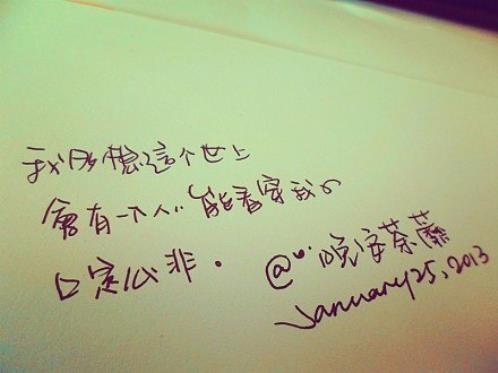 我多想這个世上
會有一个人“能看穿我的
口是心非。 @晚安荼蘼
January 25, 2013